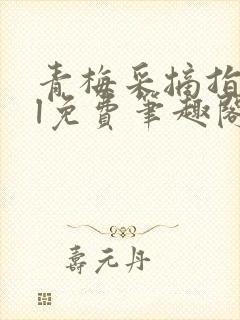 青梅采摘指
l免费笔趣阁
寿元丹